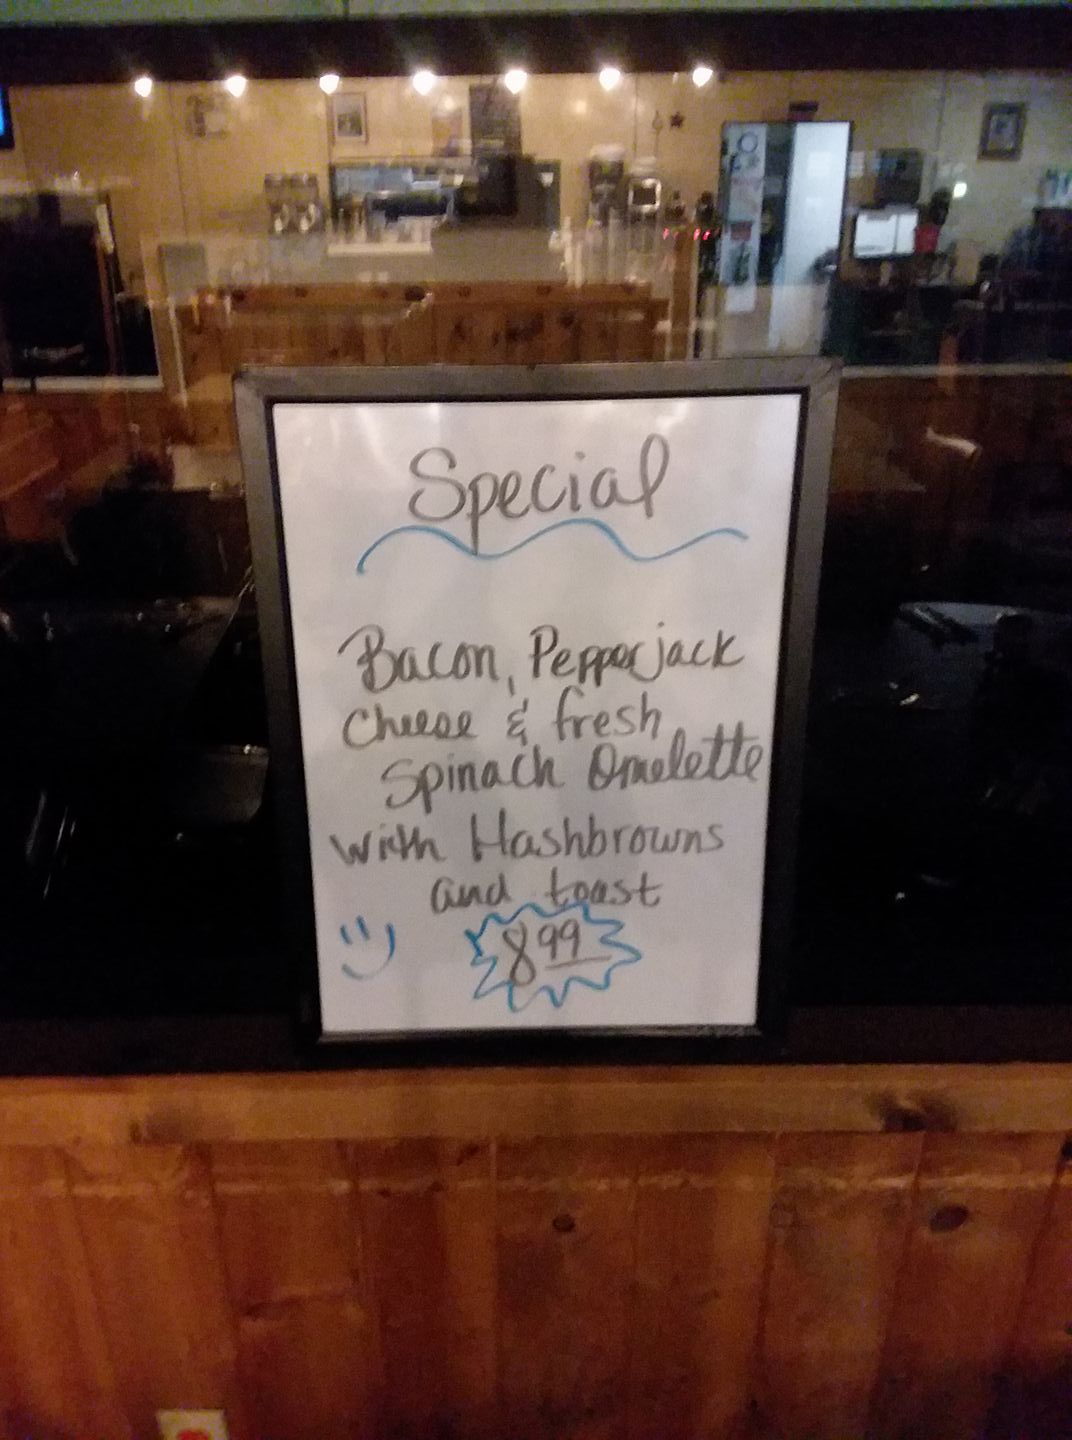 Special
Bacon, Pepperjack
Cheese & fresh
Spinach Omelette
with Hashbrowns
and toast
8 99